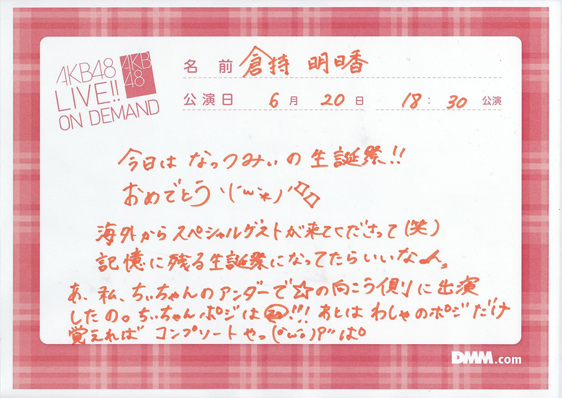 AKB48
LIVE!!
ON DEMAND
AKB
48
名前 倉持 明日香
公演日 6月 20日 18:30 公演
今日は なっつみぃの生誕祭!!
おめでとう ヽ(´ω`*)ノ
海外からスペシャルゲストが来てくださって(笑)
記憶に残る生誕祭になってたらいいなぁ。
あ、私、ちぃちゃんのアンダーで☆の向こう側に出演
したの。ちぃちゃんポジは!!! あとはわしゃのポジだけ
覚えれば コンプリートやっ
DMM.com